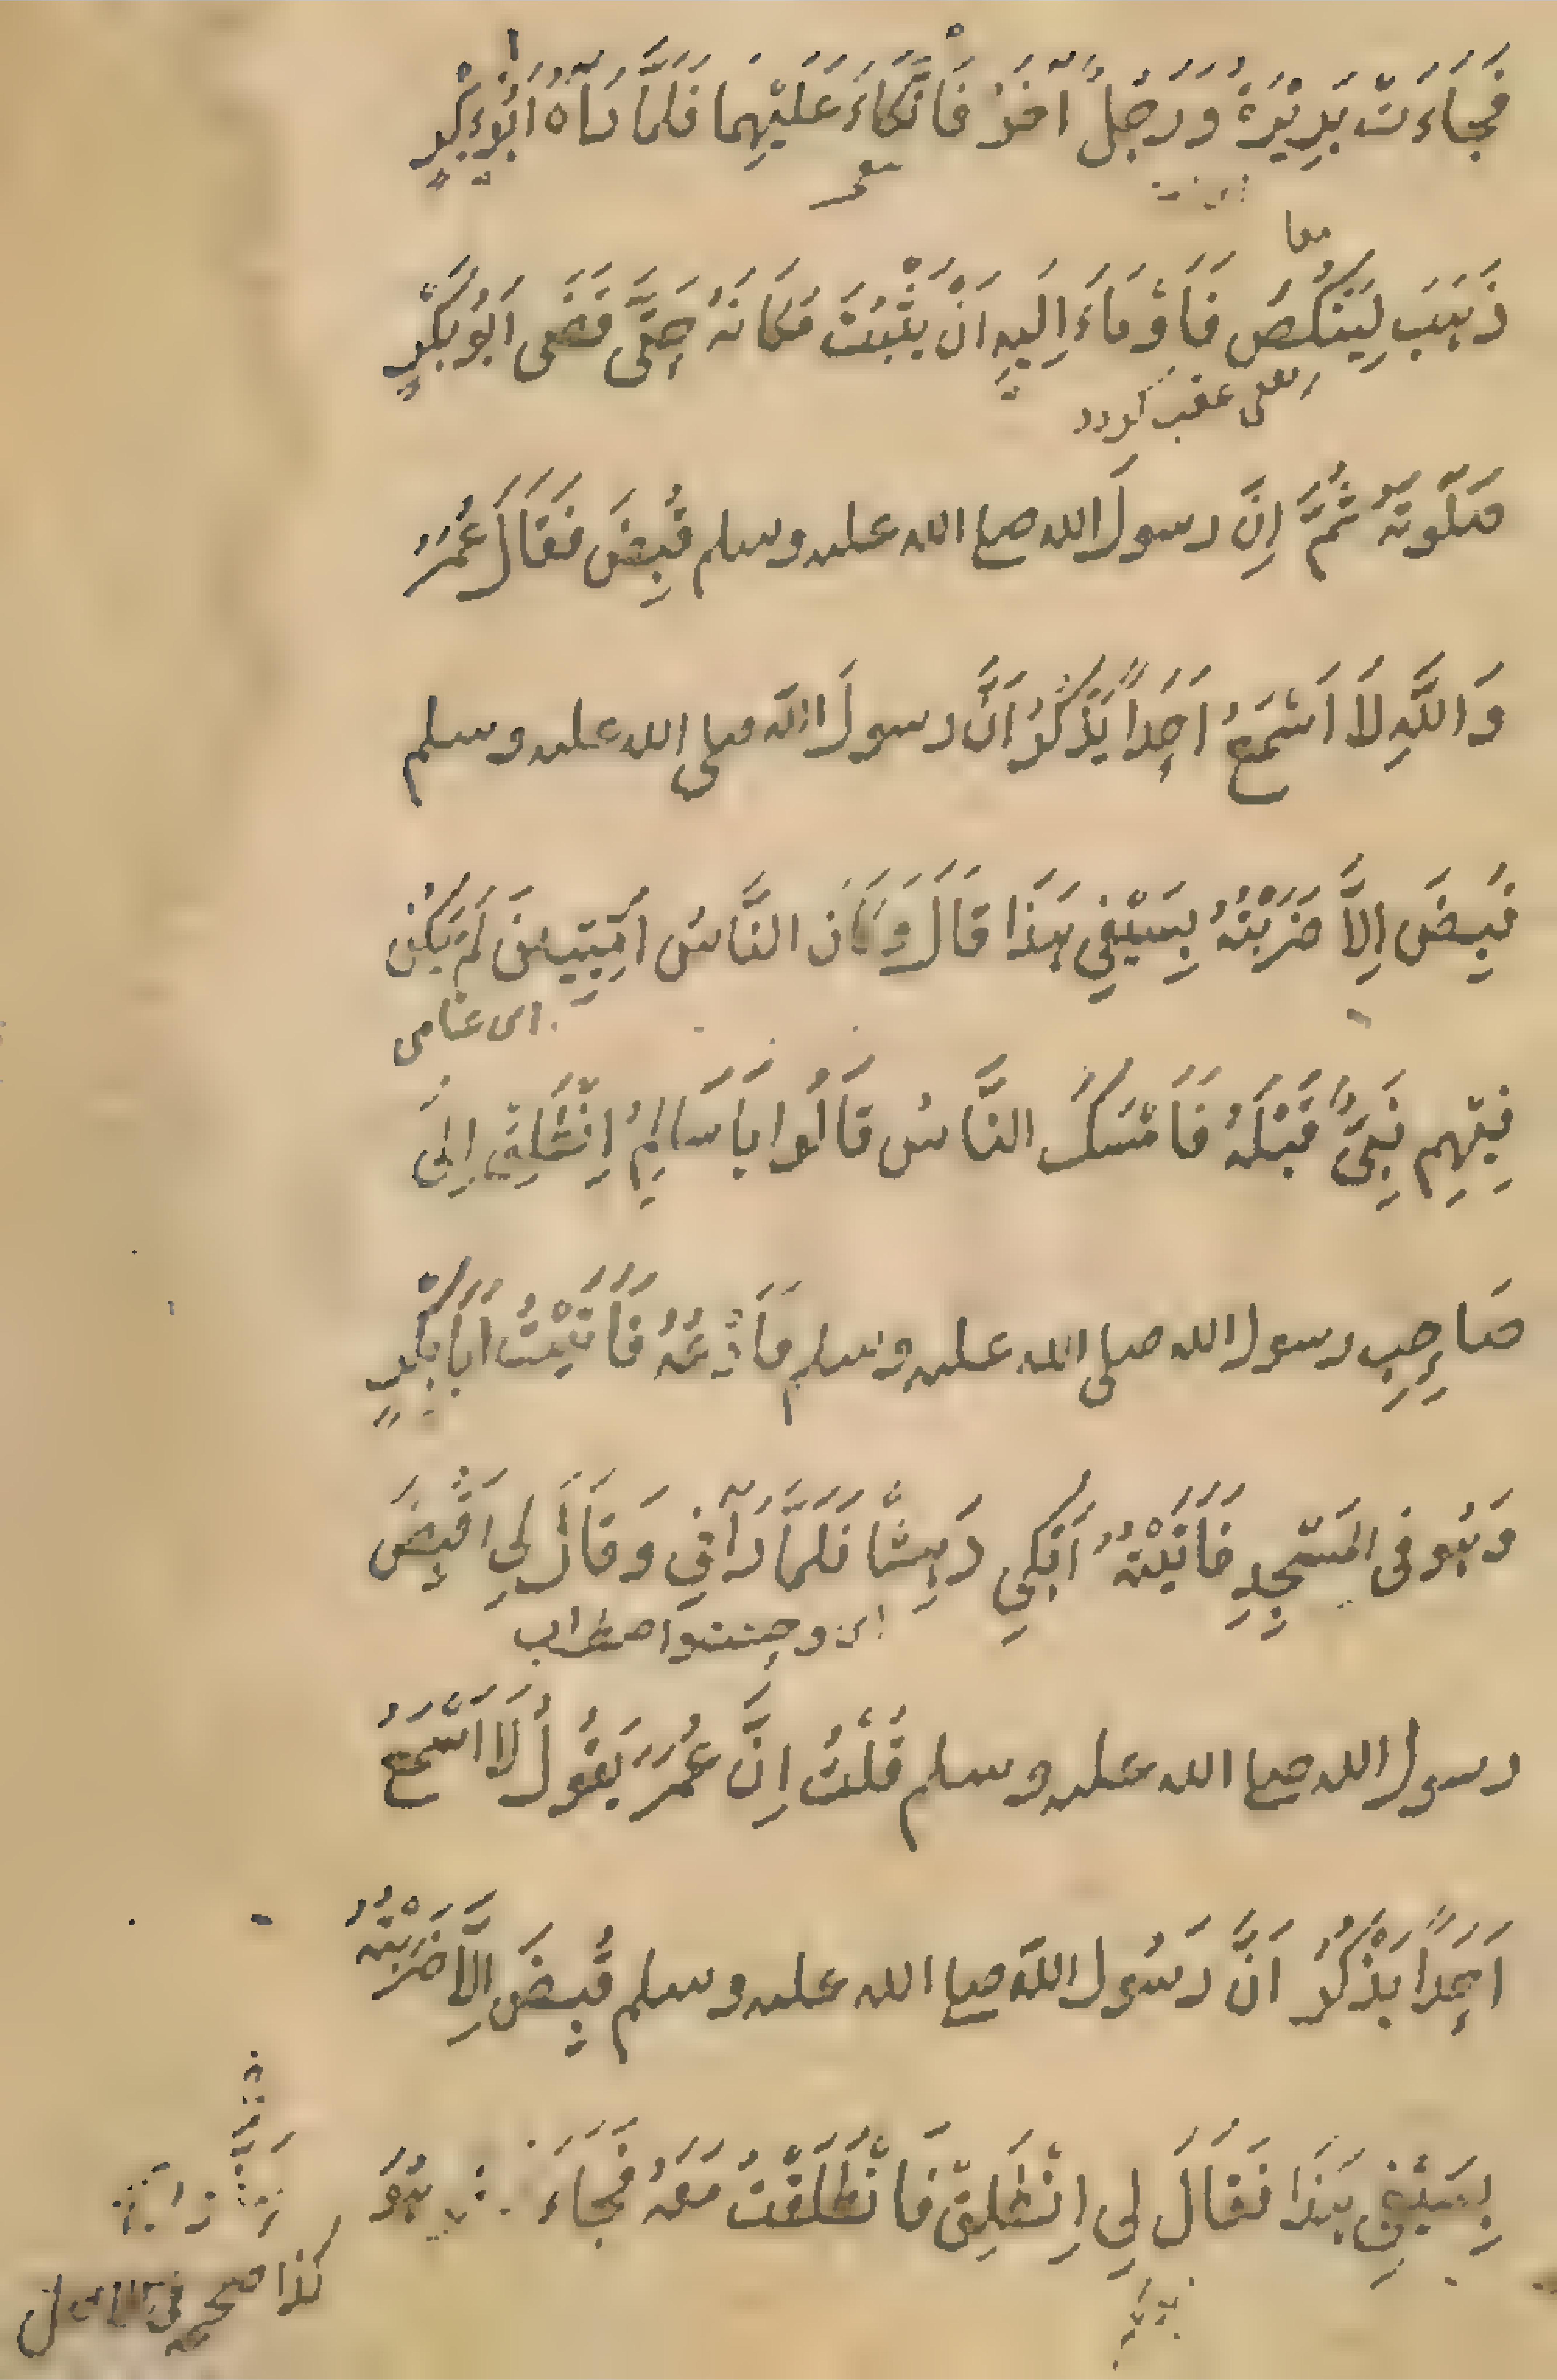 فَجَاءَتْ بَرِيْرَةُ وَرَجُلٌ آخَرُ فَاتَّكَاءَ عَلَيْهِمَا فَلَمَّا رَآهُ اَبُوْبَكْرٍ
معا
ذَهَبَ لِيَنْكُصَ فَاَوْمَاءَ اِلَيْهِ اَنْ يَثْبُتَ مَكَانَهُ حَتَّى قَضَى اَبُوْبَكْرٍ
عقب كردد
صَلٰوتَهُ ثُمَّ اِنَّ رسولَ الله صلى الله عليه وسلم قُبِضَ فَقَالَ عُمَرُ
وَاللَّهِ لَا اَسْمَعُ اَحَداً يَذْكُرُ اَنَّ رسولَ الله صلى الله عليه وسلم
قُبِضَ اِلَّا ضَرَبْتُهُ بِسَيْفِي هَذَا قَالَ وَكَانَ النَّاسُ اُمِّيِيْنَ لَمْ يَكُنْ
اى عامى
فِيْهِم نَبِىٌّ قَبْلَهُ فَاَمْسَكَ النَّاسُ قَالُوا يَا سَالِمُ اِنْطَلِقْ اِلىَ
صَاحِبِ رسول الله صلى الله عليه وسلم فَادْعُهُ فَاَتَيْتُ اَبَابَكْرٍ
وَهُو فى المَسْجِدِ فَاَتَيْتُهُ اَبْكِي دَهِشًا فَلَمَّا رَآنِي وَقَالَ لِي اَقُبِضَ
اى وحشت واضطراب
رسول الله صلى الله عليه وسلم قُلْتُ اِنَّ عُمَرَ يَقُولُ لَا اَسْمَعُ
اَحَداً يَذْكُرُ اَنَّ رَسُول الله صلى الله عليه وسلم قُبِضَ اِلَّا ضَرَبْتُهُ
بِسَيْفِي هَذَا فَقَالَ لِي اِنْطَلِقْ فَانْطَلَقْتُ مَعَهُ فَجَاءَ هُوَ
كذا صحح فى الاصل